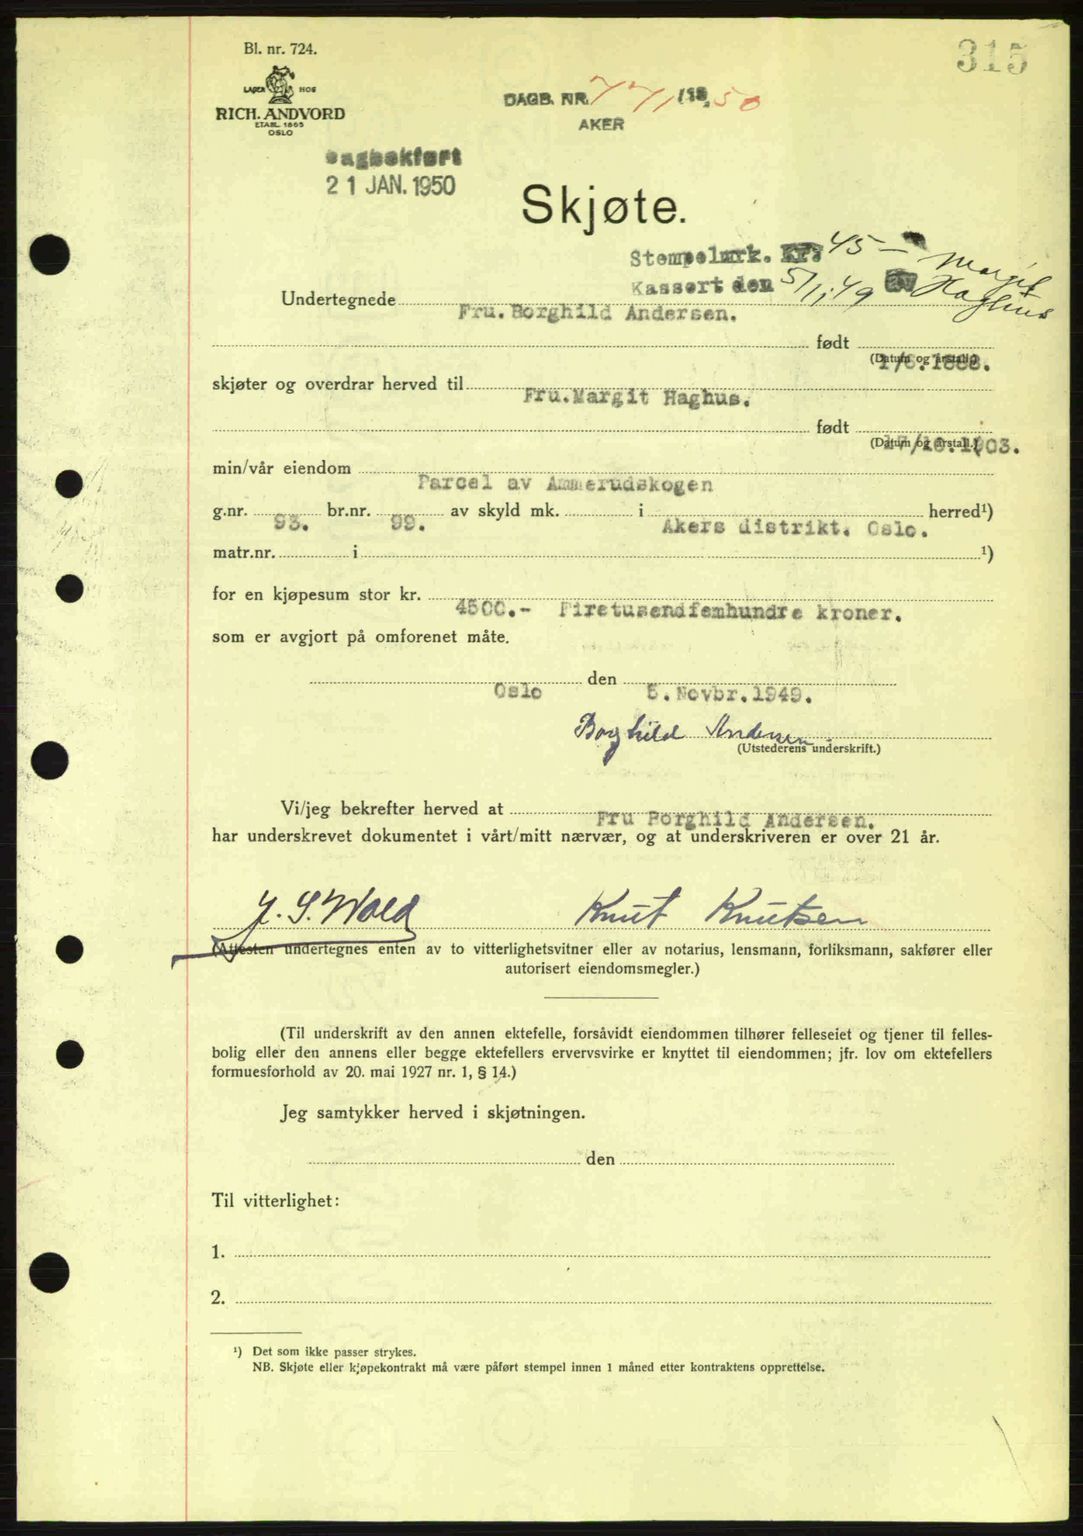 Bl. nr. 724.
315
LAGER HOS
RICH. ANDVORD
ETABL. 1865
OSLO
DAGB. NR. 771/1950
AKER
Dagbokført
21 JAN. 1950
Skjøte.
Stempelmrk. kr. 45 —
Kassert den 5/11.49 av Margit Haghus
Undertegnede Fru. Borghild Andersen.
født
(Datum og årstall.)
skjøter og overdrar herved til Fru. Margit Haghus.
født 17/10.1903.
(Datum og årstall.)
min/vår eiendom Parcel av Ammerudskogen
g.nr. 93. br.nr. 99. av skyld mk. i Akers distrikt. Oslo. herred¹)
matr.nr. i ¹)
for en kjøpesum stor kr. 4500.- Firetusenfemhundre kroner.
som er avgjort på omforenet måte.
Oslo den 5. Novbr. 1949.
Borghild Andersen
(Utstederens underskrift.)
Vi/jeg bekrefter herved at Fru Borghild Andersen.
har underskrevet dokumentet i vårt/mitt nærvær, og at underskriveren er over 21 år.
Knut Knutsen
(Attesten undertegnes enten av to vitterlighetsvitner eller av notarius, lensmann, forliksmann, sakfører eller
autorisert eiendomsmegler.)
(Til underskrift av den annen ektefelle, forsåvidt eiendommen tilhører felleseiet og tjener til felles-
bolig eller den annens eller begge ektefellers ervervsvirke er knyttet til eiendommen; jfr. lov om ektefellers
formuesforhold av 20. mai 1927 nr. 1, § 14.)
Jeg samtykker herved i skjøtningen.
den
Til vitterlighet:
1.
2.
¹) Det som ikke passer strykes.
NB. Skjøte eller kjøpekontrakt må være påført stempel innen 1 måned etter kontraktens opprettelse.